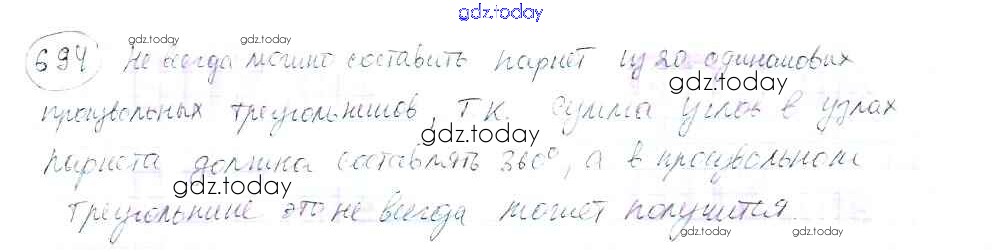 gdz.today
694 Не всегда можно составить паркет из 20 одинаковых
gdz.today
произвольных треугольников, т.к. сумма углов в узлах
gdz.today
паркета должна составлять 360°, а в произвольном
gdz.today
треугольнике это не всегда может получится.
gdz.today
gdz.today